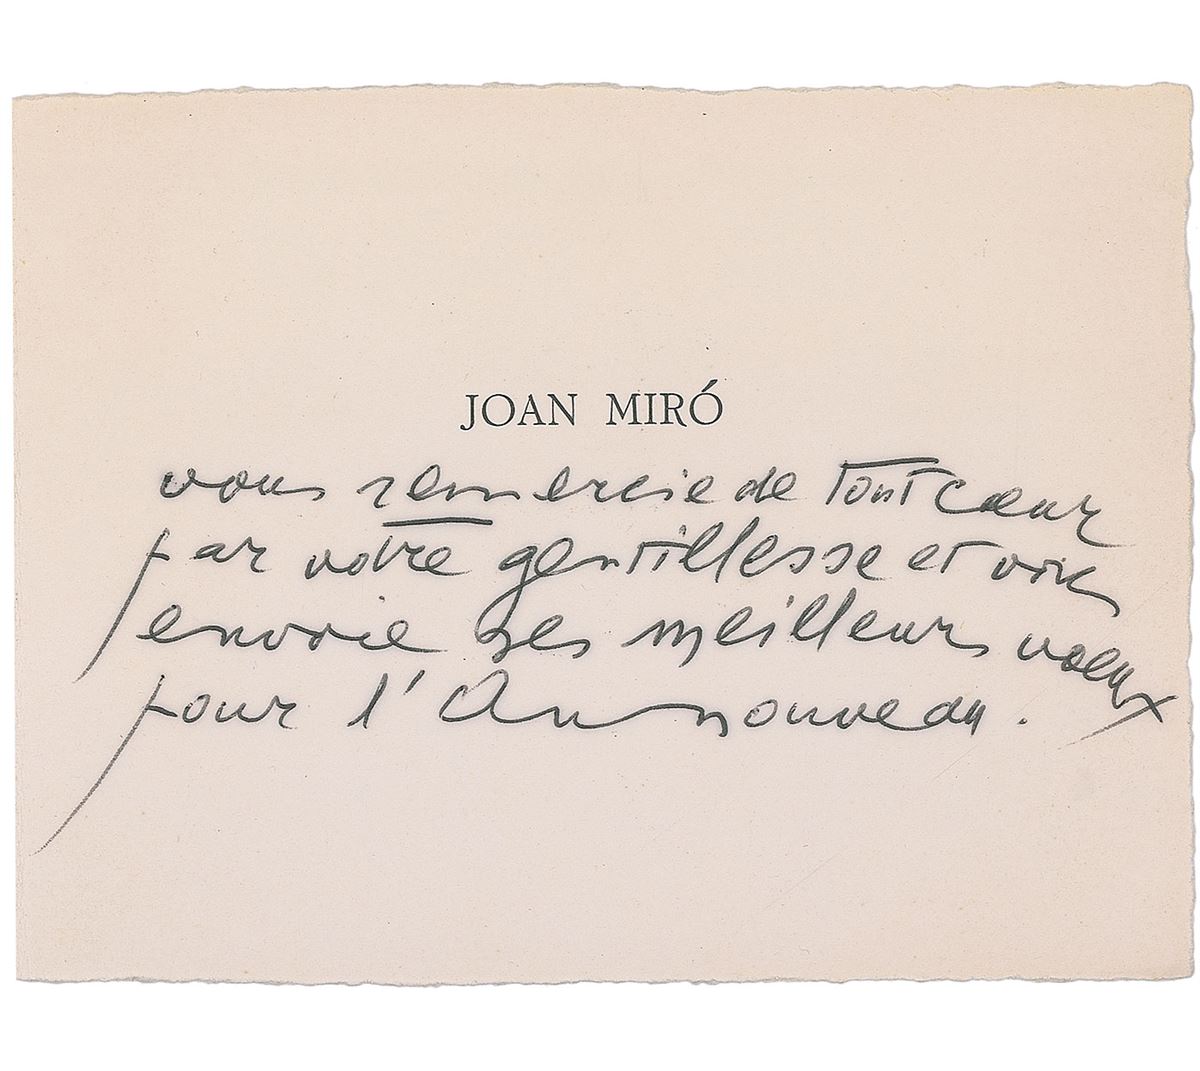 JOAN MIRÓ
vous remercie de tout cœur
par votre gentillesse et vous
envoie ses meilleurs voeux
pour l'An nouveau.